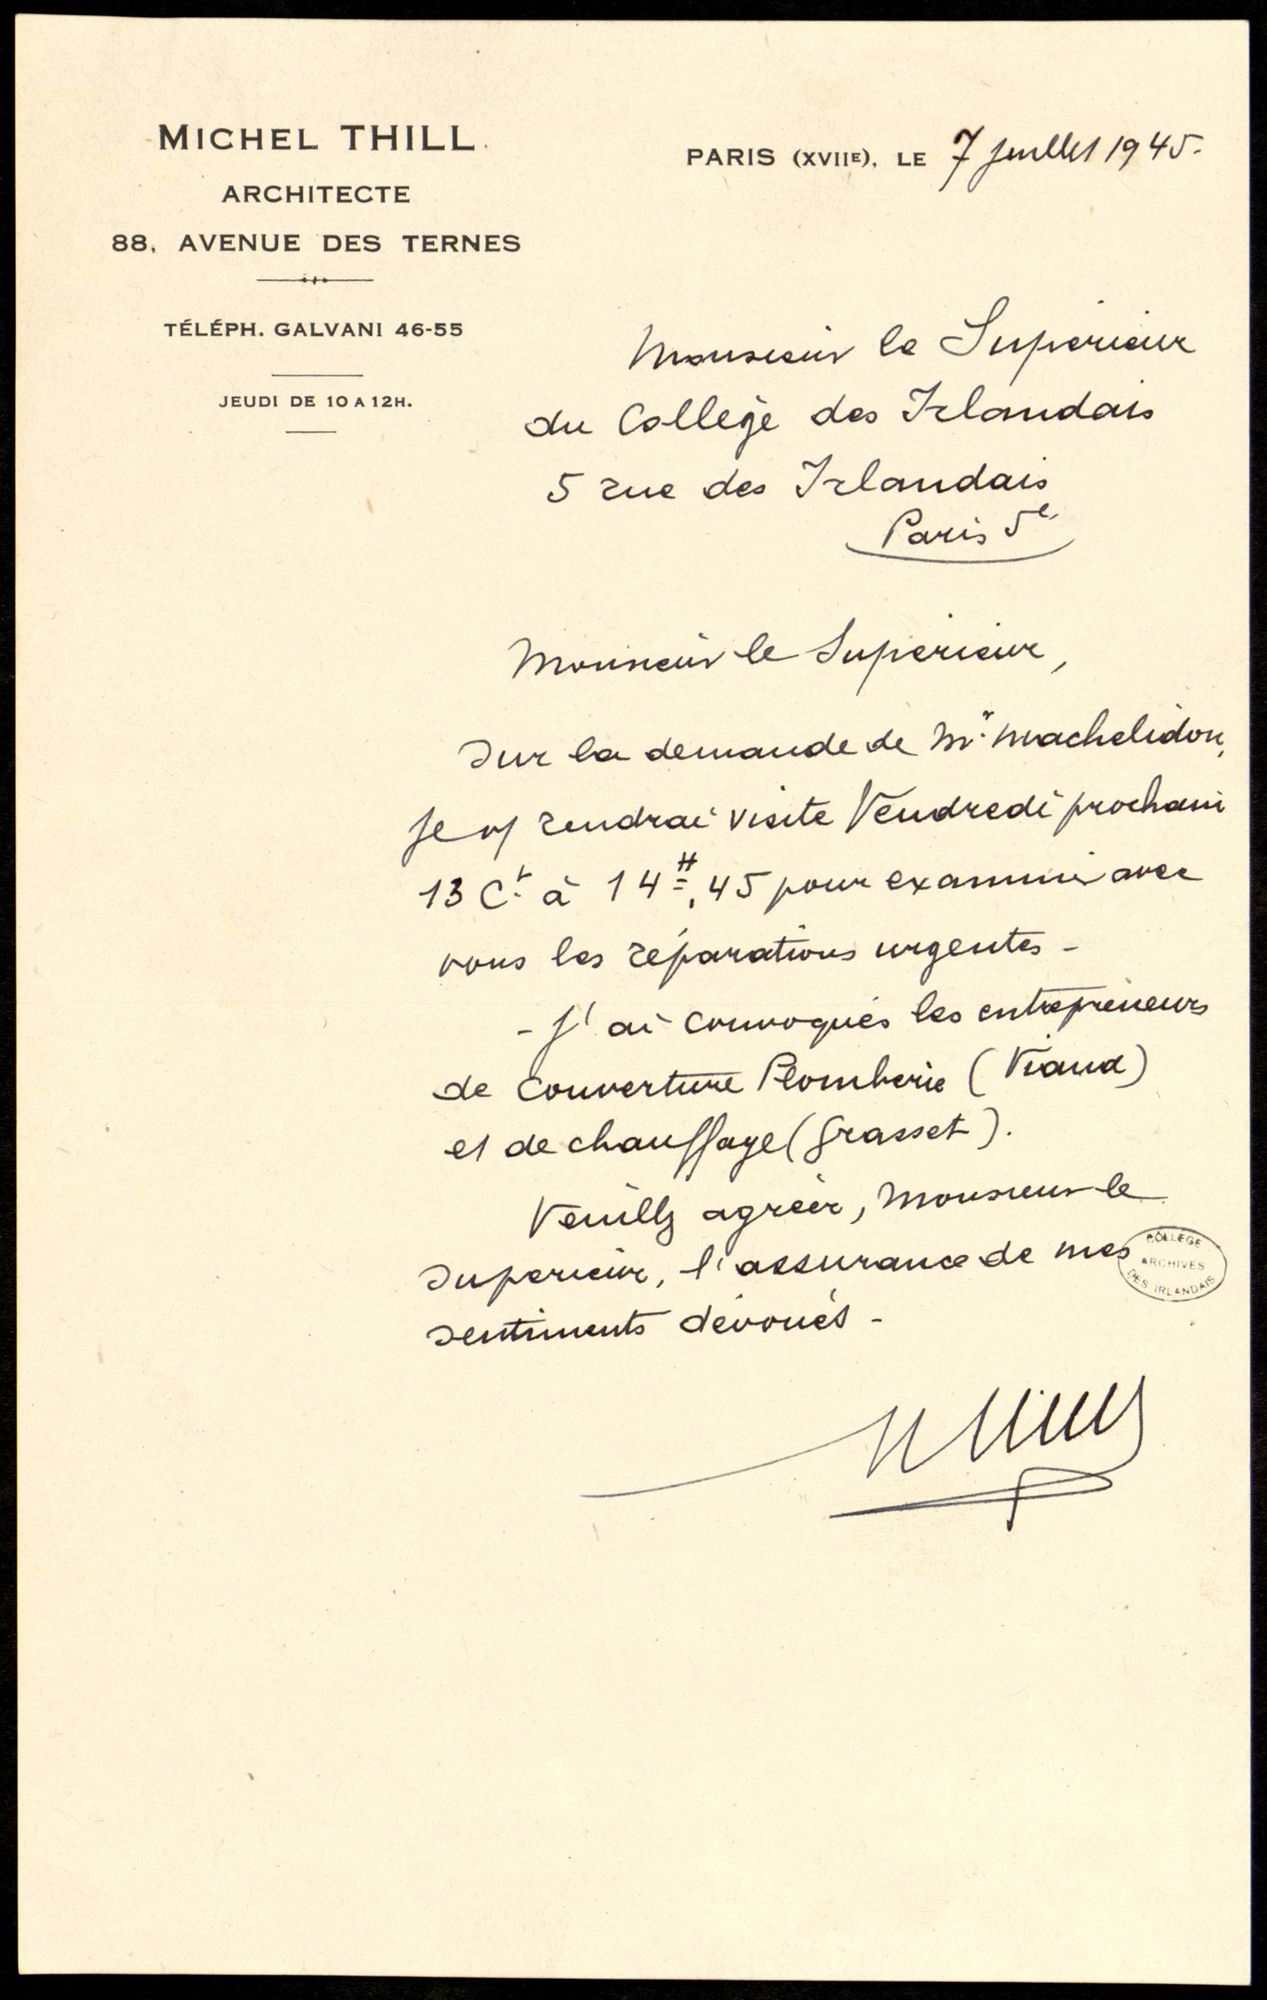 MICHEL THILL
ARCHITECTE
88, AVENUE DES TERNES
TÉLÉPH. GALVANI 46-55
JEUDI DE 10 A 12H.
PARIS (XVIIE), LE 7 juillet 1945.
Monsieur le Supérieur
du Collège des Irlandais
5 rue des Irlandais
Paris 5e
Monsieur le Supérieur,
Sur la demande de Mr. Machelidon,
Je vs rendrai visite Vendredi prochain
13 Ct à 14H,45 pour examiner avec
vous les réparations urgentes -
- J'ai convoqués les entrepreneurs
de Couverture Plomberie (Viaud)
et de chauffage (Grasset).
Veuillez agréer, Monsieur le
Supérieur, l'assurance de mes
sentiments dévoués -
COLLEGE
ARCHIVES
DES IRLANDAIS